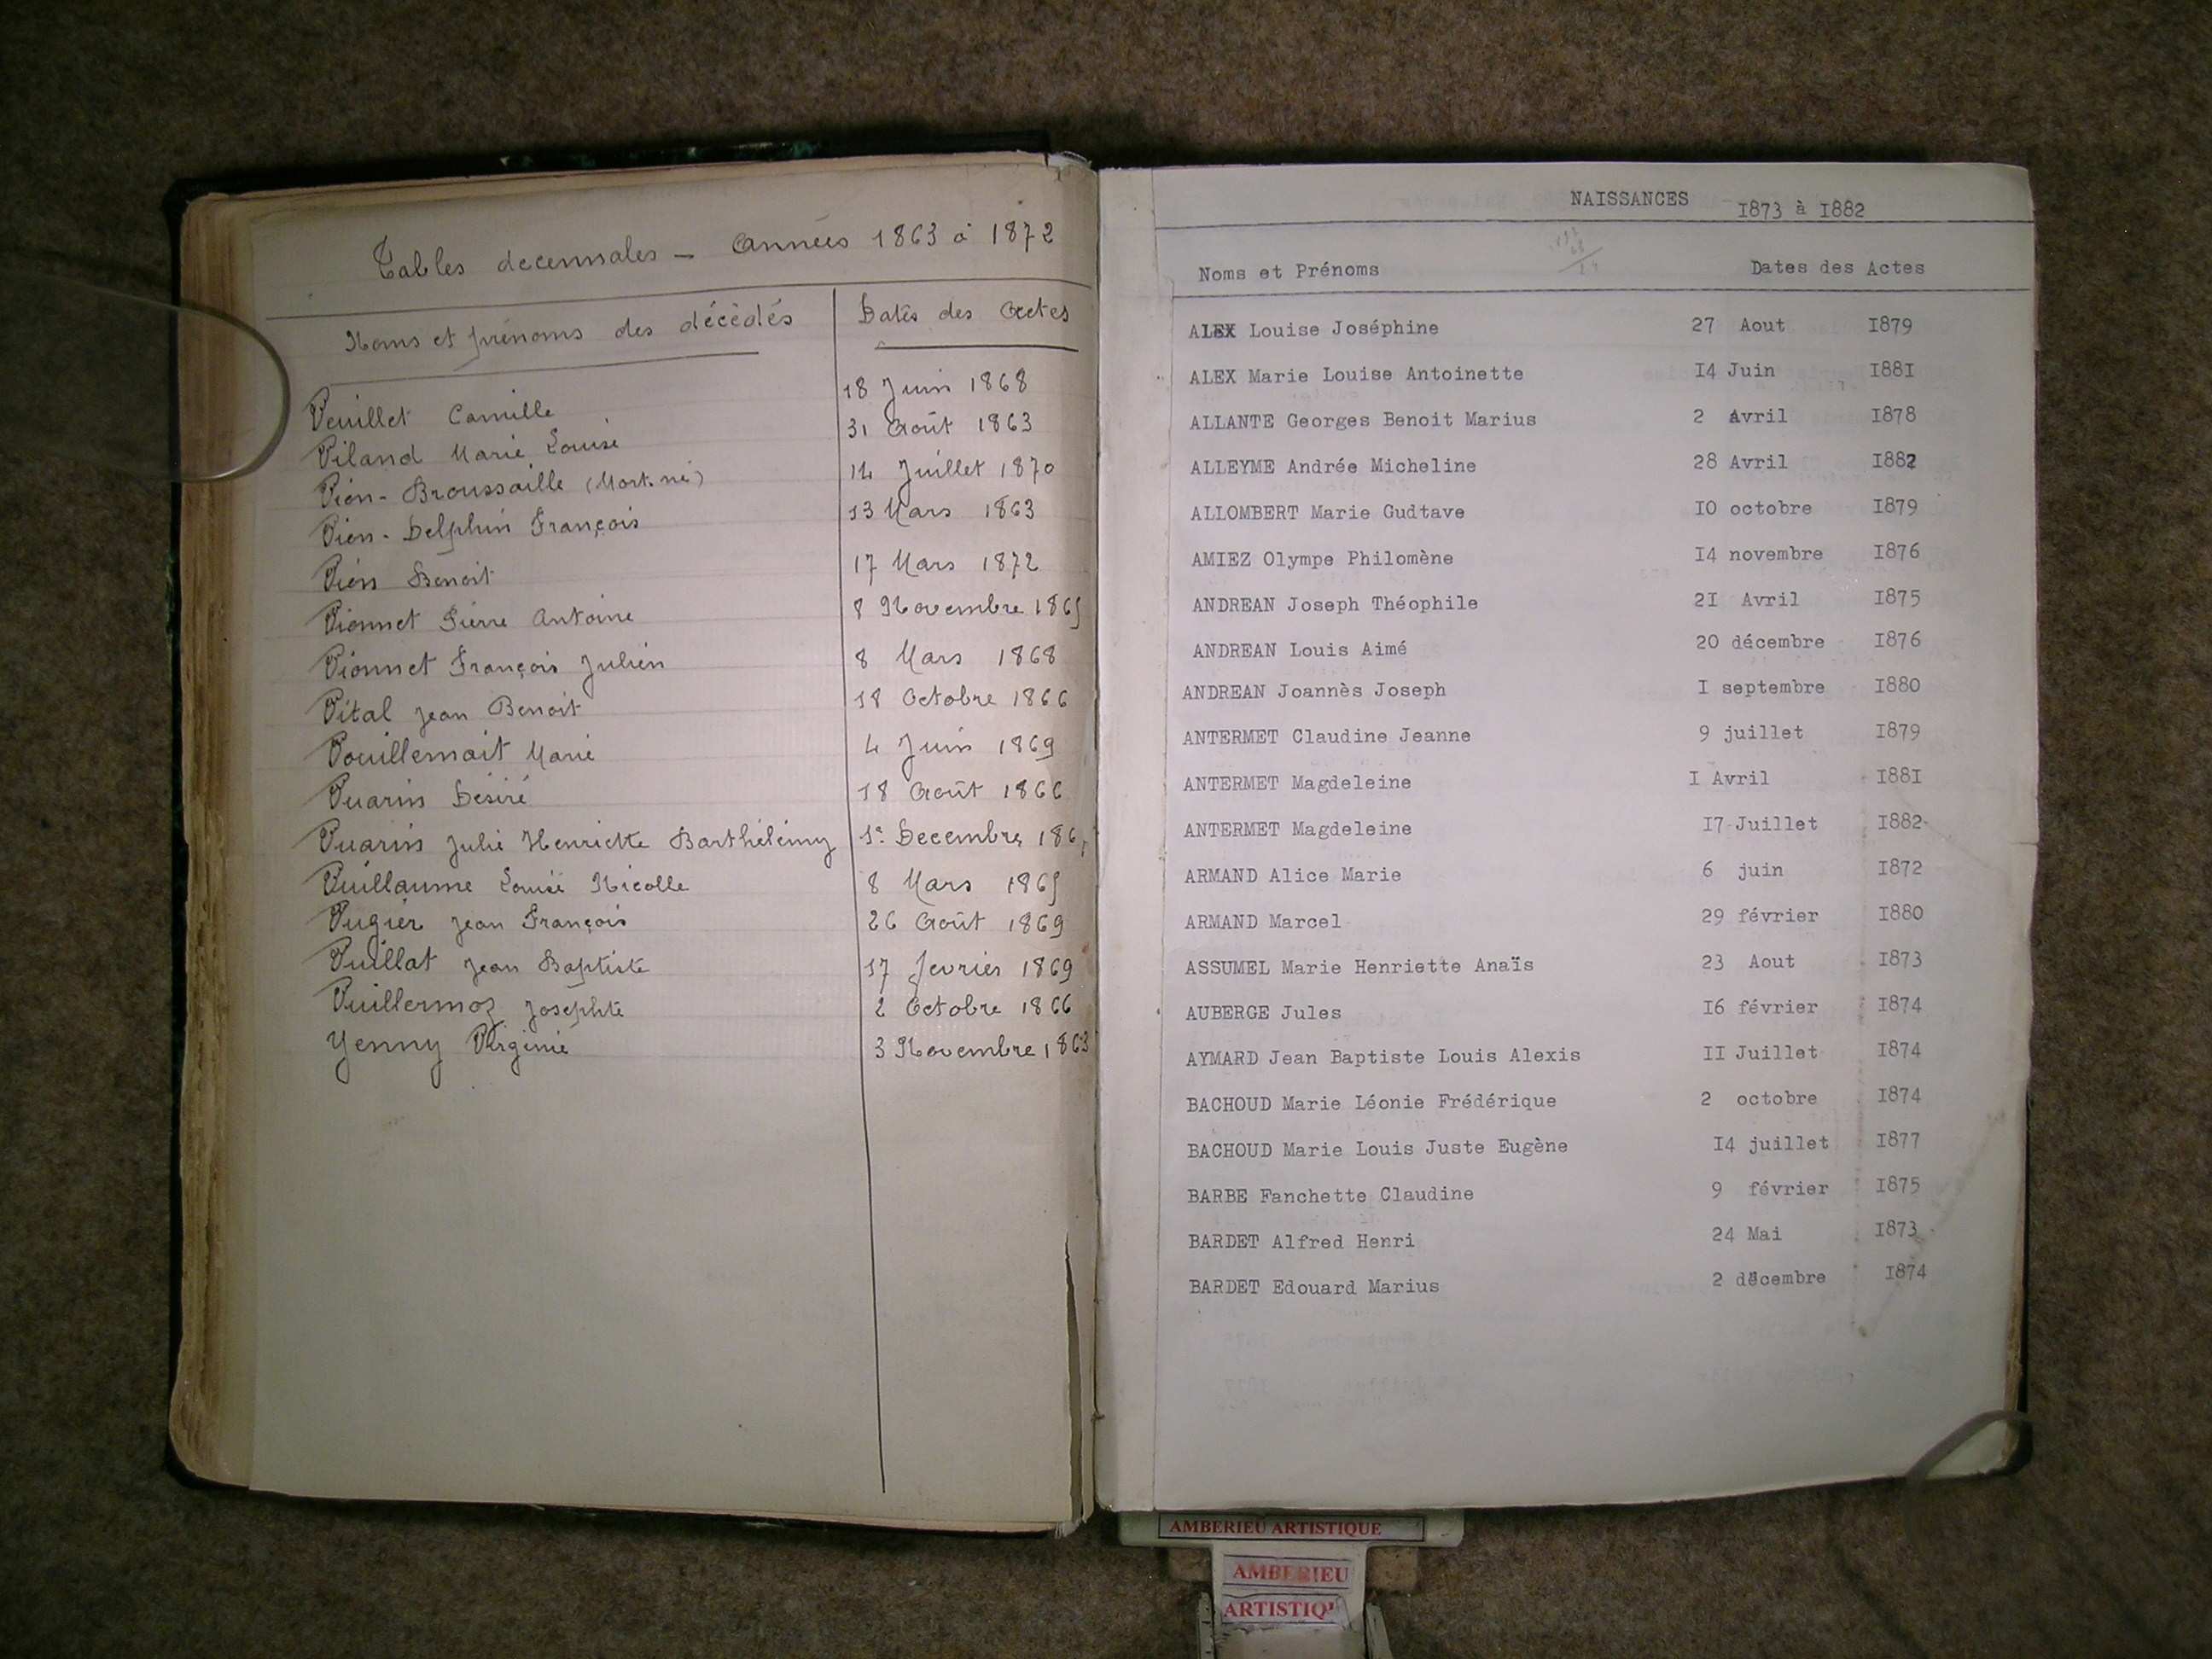 Tables decennales - Années 1863 à 1872
Noms et prénoms des décédés Dates des Actes
Veuillet Camille 18 Juin 1868
Viland Marie Louise 31 Août 1863
Vion - Broussaille (Mort. né) 14 Juillet 1870
Vion - Delphin François 13 Mars 1863
Vion Benoit 17 Mars 1872
Vionnet Pierre Antoine 8 Novembre 1865
Vionnet François Julien 8 Mars 1868
Vital Jean Benoit 18 Octobre 1866
Vouillemait Marie 4 Juin 1869
Vuarin Désiré 18 Août 1866
Vuarin Julie Henriette Barthélémy 1er Decembre
Vuillaume Louise Nicolle 8 Mars 1865
Vugier Jean François 26 Août 1869
Vuillat Jean Baptiste 17 fevrier 1869
Vuillermoz Josephte 2 Octobre 1866
Yenny Virginie 3 Novembre 1863
NAISSANCES 1873 à 1882
Noms et Prénoms Dates des Actes
ALEX Louise Joséphine 27 Aout 1879
ALEX Marie Louise Antoinette 14 Juin 1881
ALLANTE Georges Benoit Marius 2 Avril 1878
ALLEYME Andrée Micheline 28 Avril 1882
ALLOMBERT Marie Gudtave 10 octobre 1879
AMIEZ Olympe Philomène 14 novembre 1876
ANDREAN Joseph Théophile 21 Avril 1875
ANDREAN Louis Aimé 20 décembre 1876
ANDREAN Joannès Joseph I septembre 1880
ANTERMET Claudine Jeanne 9 juillet 1879
ANTERMET Magdeleine I Avril 1881
ANTERMET Magdeleine 17 Juillet 1882
ARMAND Alice Marie 6 juin 1872
ARMAND Marcel 29 février 1880
ASSUMEL Marie Henriette Anaïs 23 Aout 1873
AUBERGE Jules 16 février 1874
AYMARD Jean Baptiste Louis Alexis II Juillet 1874
BACHOUD Marie Léonie Frédérique 2 octobre 1874
BACHOUD Marie Louis Juste Eugène 14 juillet 1877
BARBE Fanchette Claudine 9 février 1875
BARDET Alfred Henri 24 Mai 1873
BARDET Edouard Marius 2 décembre 1874
AMBERIEU ARTISTIQUE
AMBERIEU
ARTISTIQU